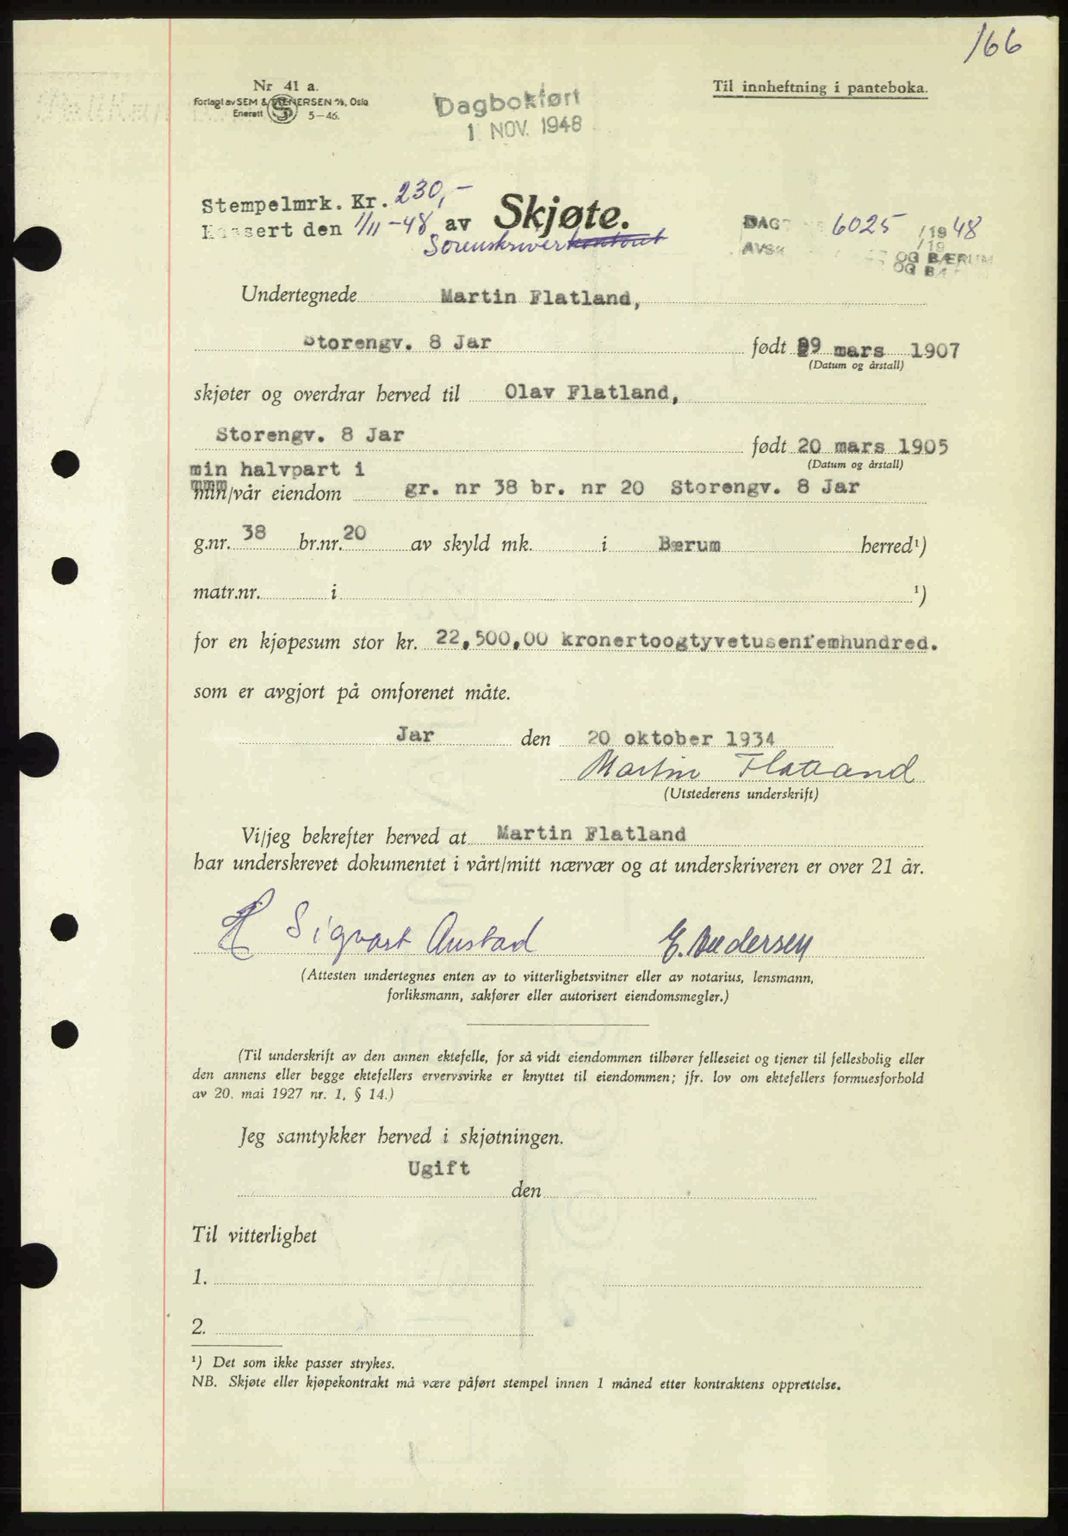 166
Nr 41 a.
Forlagt av SEM & STENERSEN A/S, Oslo
Enerett 5-46.
Til innheftning i panteboka.
Dagbokført
1 NOV. 1948
Stempelmrk. Kr. 230,-
Kassert den 1/11-48 av
Sorenskriverkontoret
Skjøte.
DAGB 6025 /1948
AVSK /19
OG BÆRUM
OG BÆ
Undertegnede Martin Flatland,
Storengv. 8 Jar født 29 mars 1907
(Datum og årstall)
skjøter og overdrar herved til Olav Flatland,
Storengv. 8 Jar født 20 mars 1905
(Datum og årstall)
min halvpart i
min/vår eiendom gr. nr 38 br. nr 20 Storengv. 8 Jar
g.nr. 38 br.nr. 20 av skyld mk. i Bærum herred¹)
matr.nr. i ¹)
for en kjøpesum stor kr. 22,500,00 kronertoogtyvetusenfemhundred.
som er avgjort på omforenet måte.
Jar den 20 oktober 1934
Martin Flatland
(Utstederens underskrift)
Vi/jeg bekrefter herved at Martin Flatland
har underskrevet dokumentet i vårt/mitt nærvær og at underskriveren er over 21 år.
Sigvart Austad E. Andersen
(Attesten undertegnes enten av to vitterlighetsvitner eller av notarius, lensmann,
forliksmann, sakfører eller autorisert eiendomsmegler.)
(Til underskrift av den annen ektefelle, for så vidt eiendommen tilhører felleseiet og tjener til fellesbolig eller
den annens eller begge ektefellers ervervsvirke er knyttet til eiendommen; jfr. lov om ektefellers formuesforhold
av 20. mai 1927 nr. 1, § 14.)
Jeg samtykker herved i skjøtningen.
Ugift
den
Til vitterlighet
1.
2.
¹) Det som ikke passer strykes.
NB. Skjøte eller kjøpekontrakt må være påført stempel innen 1 måned etter kontraktens opprettelse.